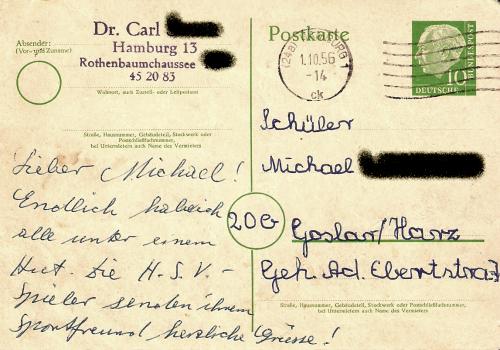 Dr. Carl
Hamburg 13
Rothenbaumchaussee
45 20 83
Absender:
(Vor- und Zuname)
Wohnort, auch Zustell- oder Leitpostamt
Straße, Hausnummer, Gebäudeteil, Stockwerk oder
Postschließfachnummer,
bei Untermietern auch Name des Vermieters
Lieber Michael!
Endlich habe ich
alle unter einem
Hut. Die H.S.V.-
Spieler senden ihrem
Sportfreund herzliche Grüsse!
Postkarte
1.10.56
-14
ck
10
DEUTSCHE
BUNDESPOST
Schüler
Michael
20b
Goslar/Harz
Straße, Hausnummer, Gebäudeteil, Stockwerk oder Postschließfachnummer,
bei Untermietern auch Name des Vermieters